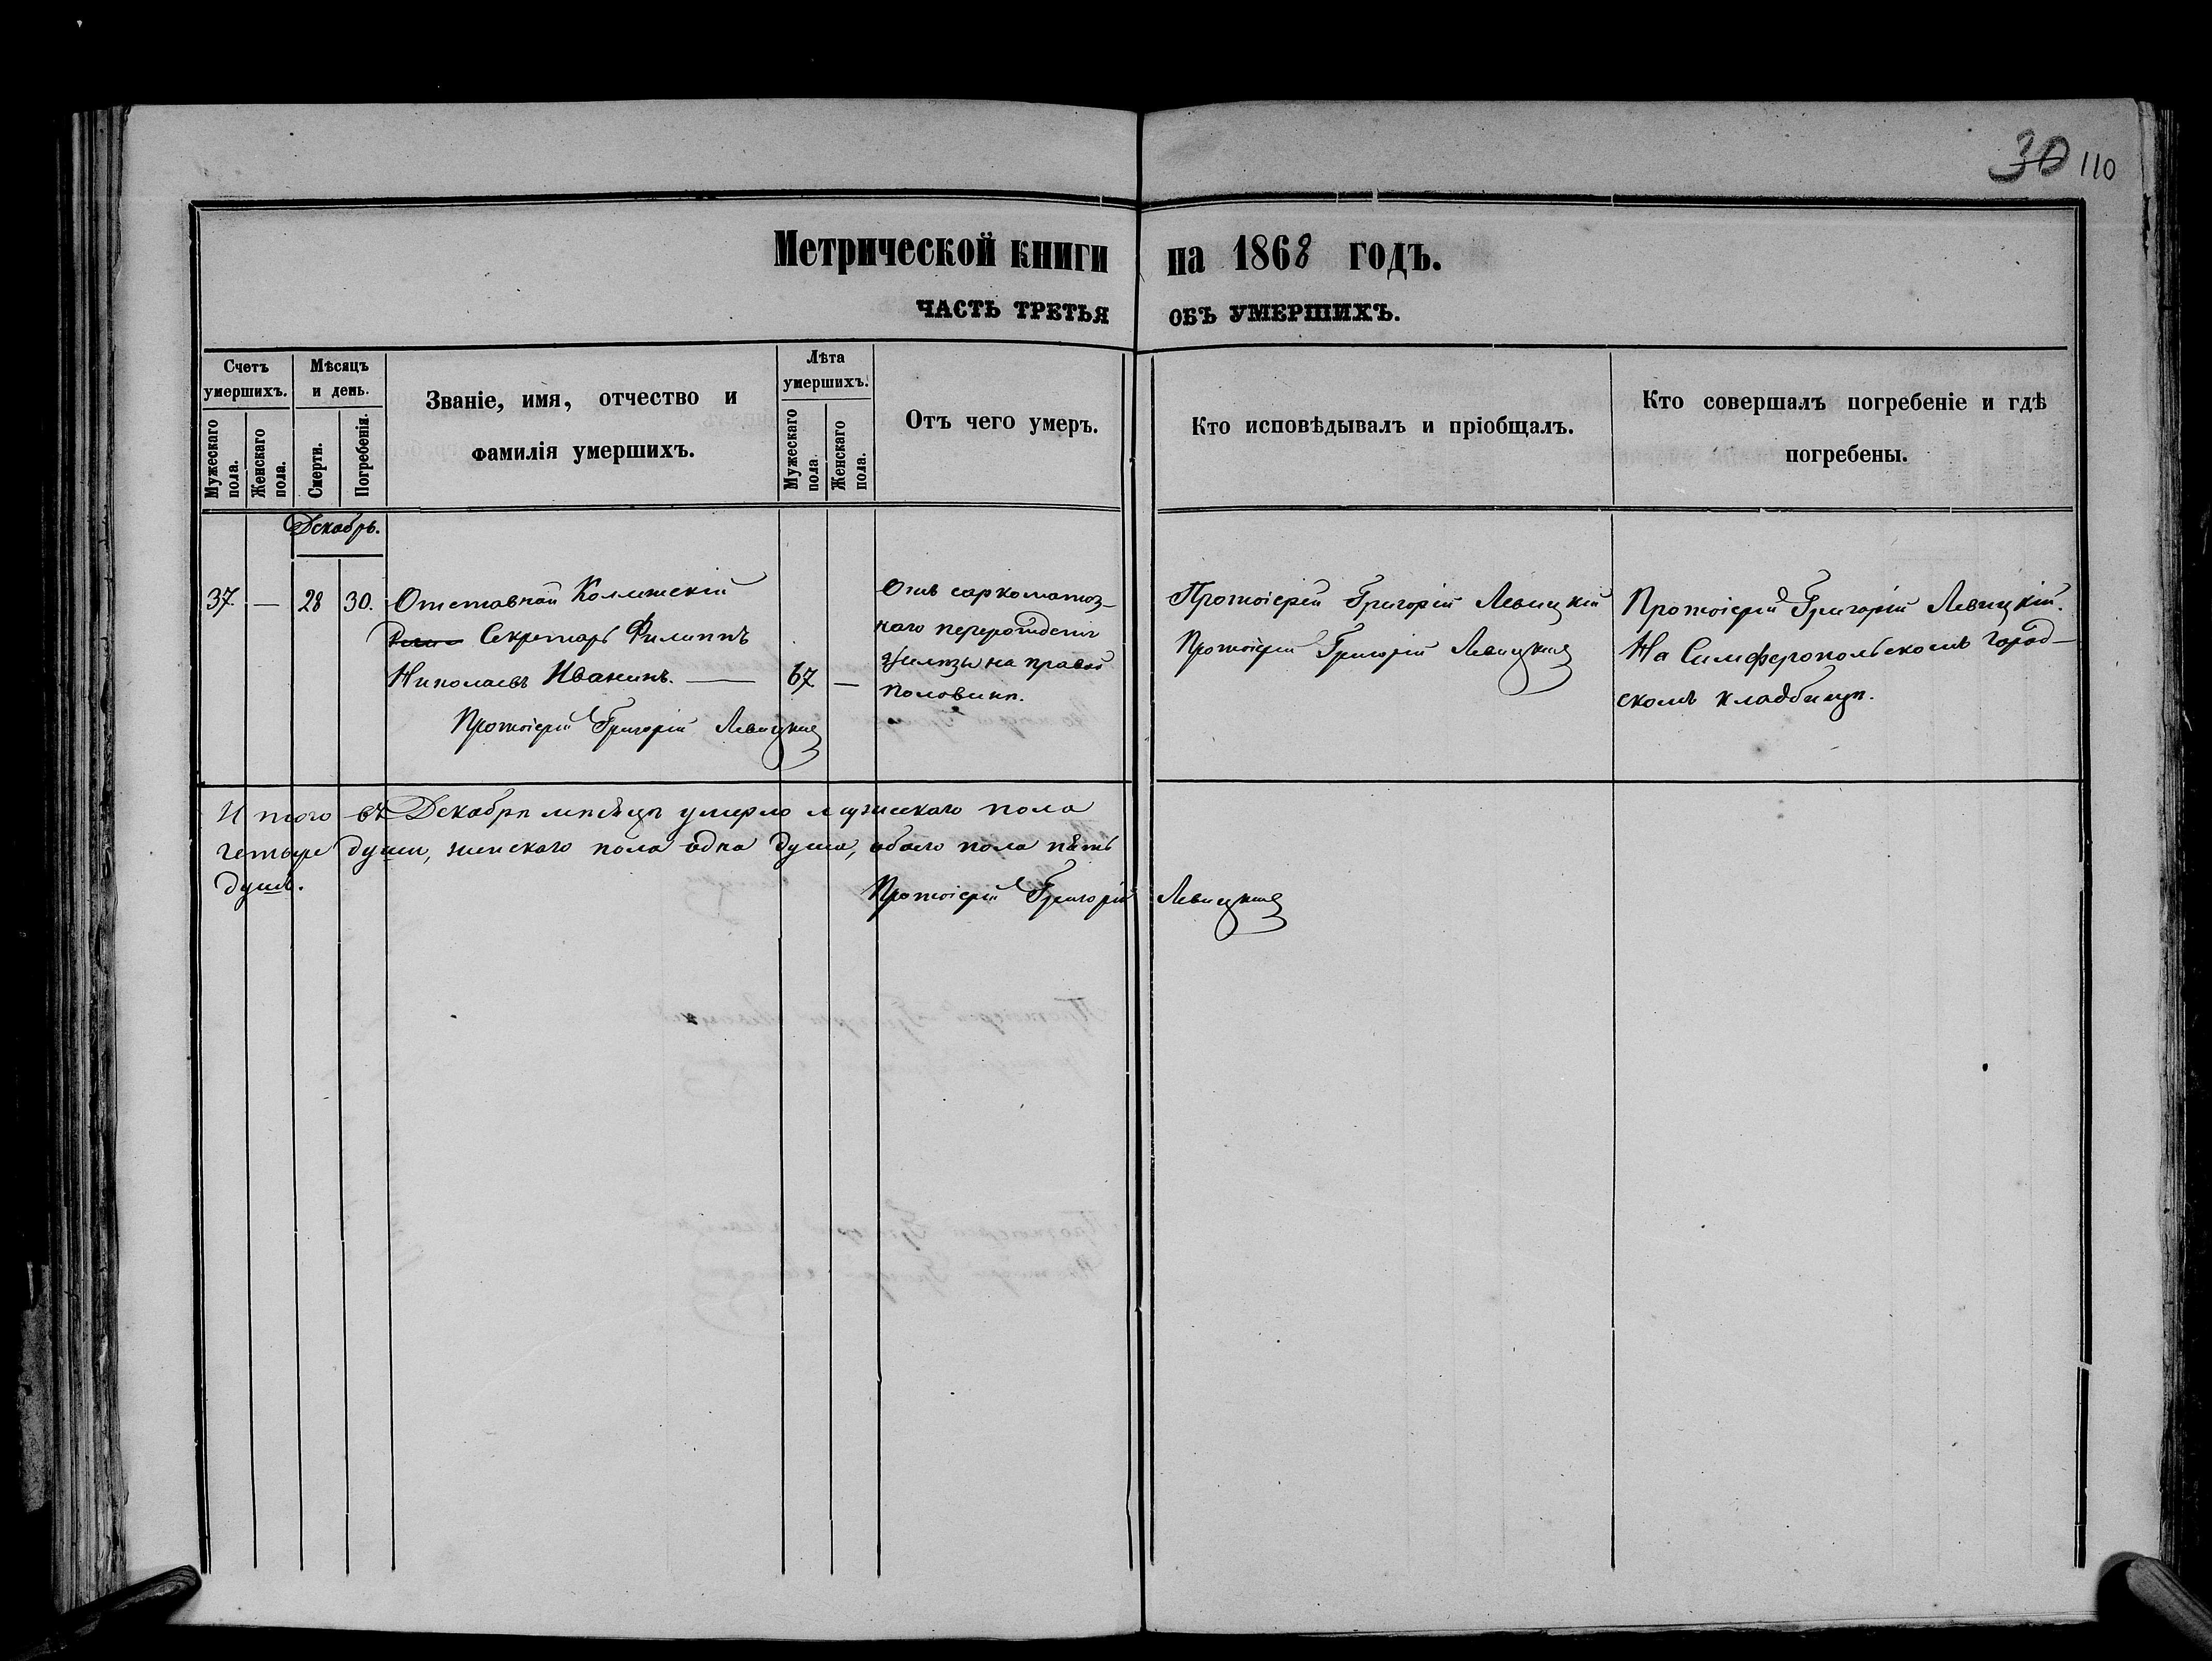 30 110
Метрической книги на 1868 годъ.
ЧАСТЬ ТРЕТЬЯ ОБЪ УМЕРШИХЪ.
Счетъ умершихъ.
Мужескаго пола.
Женскаго пола.
Мѣсяцъ и день.
Смерти.
Погребенія.
Званіе, имя, отчество и
фамилія умершихъ.
Лѣта умершихъ.
Мужескаго пола.
Женскаго пола.
Отъ чего умеръ.
Кто исповѣдывалъ и пріобщалъ.
Кто совершалъ погребеніе и гдѣ
погребены.
Декабрь.
37 — 28 30.
Отставной Коллежскій
Секретарь Филиппъ
Николаевъ Иванинъ. — 67 —
Протоіерей Григорій Левицкій
Отъ саркоматоз-
наго перерожденія
железы на правой
половинѣ.
Протоіерей Григорій Левицкій
Протоіерей Григорій Левицкій
Протоіерей Григорій Левицкій.
На Симферопольскомъ город-
скомъ кладбищѣ.
Итого въ Декабрѣ мѣсяцѣ умерло мужескаго пола
четыре души, женскаго пола одна душа, обоего пола пять
душъ.
Протоіерей Григорій Левицкій